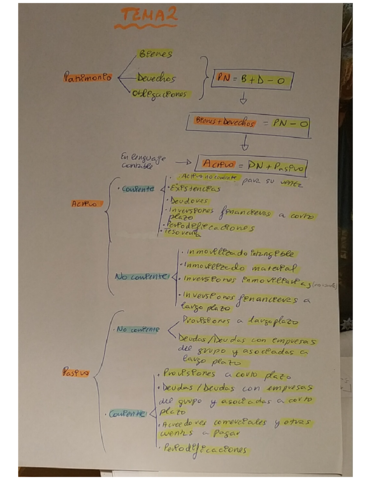 TEMA 2
Patrimonio
Bienes
Derechos
Obligaciones
PN = B + D - O
Bienes + Derechos = PN - O
En lenguaje
contable
Activo = PN + Pasivo
Activo
· Corriente
· Activo corriente para su venta
· Existencias
· Deudores
· Inversiones financieras a corto
plazo
· Periodificaciones
· Tesorería
No corriente
· Inmovilizado intangible
· Inmovilizado material
· Inversiones inmobiliarias
· Inversiones financieras a
largo plazo
Pasivo
No corriente
Provisiones a largo plazo
Deudas/Deudas con empresas
del grupo y asociadas a
largo plazo
· Corriente
· Provisiones a corto plazo
· Deudas/Deudas con empresas
del grupo y asociadas a corto
plazo
· Acreedores comerciales y otras
cuentas a pagar
· Periodificaciones